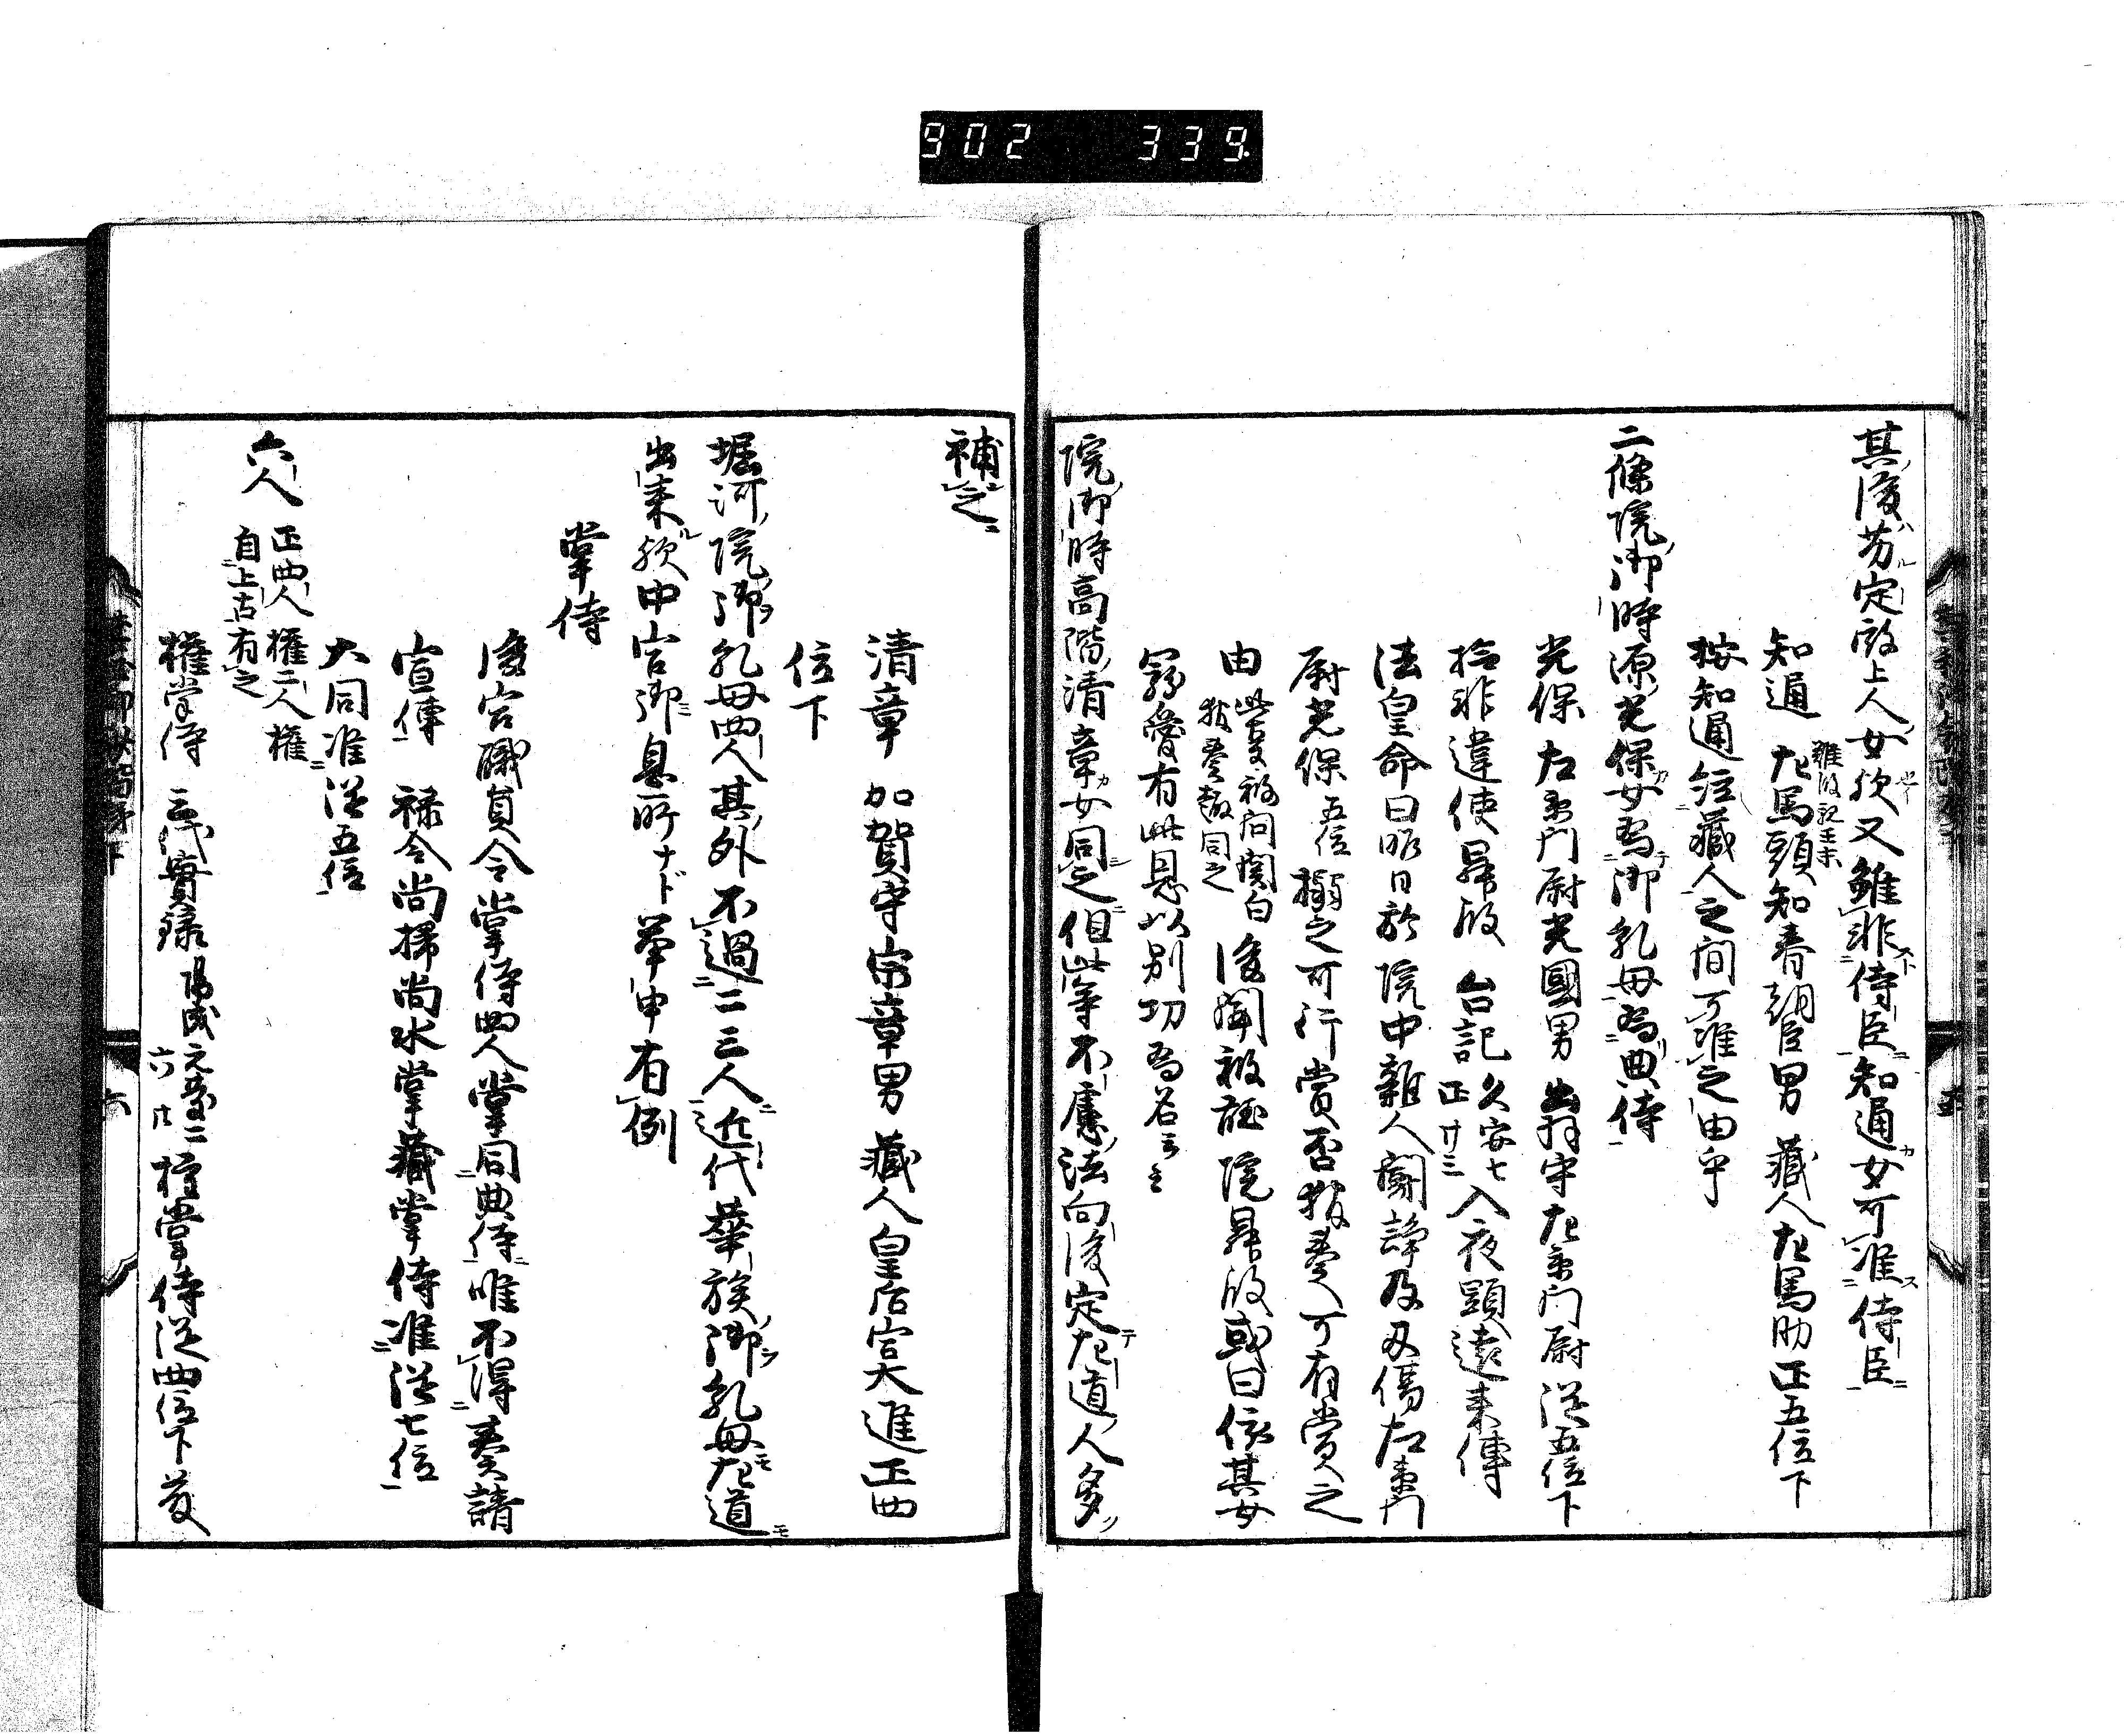 902 339
其後芳定殿上人女欤又雖非侍臣知通女可准侍臣
知通 左馬頭知春朝臣男 藏人左馬助正五位下
按知通經藏人之間可准之由乎
二條院御時源光保女為御乳母為典侍
光保 左衛門尉光國男 出羽守左衛門尉 従五位下
檢非違使昇殿 台記 久安七正廿三 入夜顕遠来傳
法皇命曰昨日於院中雜人闘諍及刃傷左衛門
尉光保 五位 搦之可行賞否報奏可有賞之
由 此事被問関白報奏趣同之 後聞被聴院昇殿或曰依其女
寵愛有此恩以別功為名云々
院御時高階清章女同之但此等不慮法向後定左道人多
補之
清章 加賀守宗章男 藏人皇后宮大進正四
位下
堀河院御乳母四人其外不過二三人近代華族御乳母左道
出来欤中宮御息所ナド挙申有例
掌侍
後宮職員令掌侍四人掌同典侍唯不得奏請
宣傳 禄令尚掃尚水掌藏掌侍准従七位
大同准従五位
六人 正四人權二人權
自上古有之
權掌侍 三代實録 陽成 元慶二 六 權掌侍従四位下菅
六